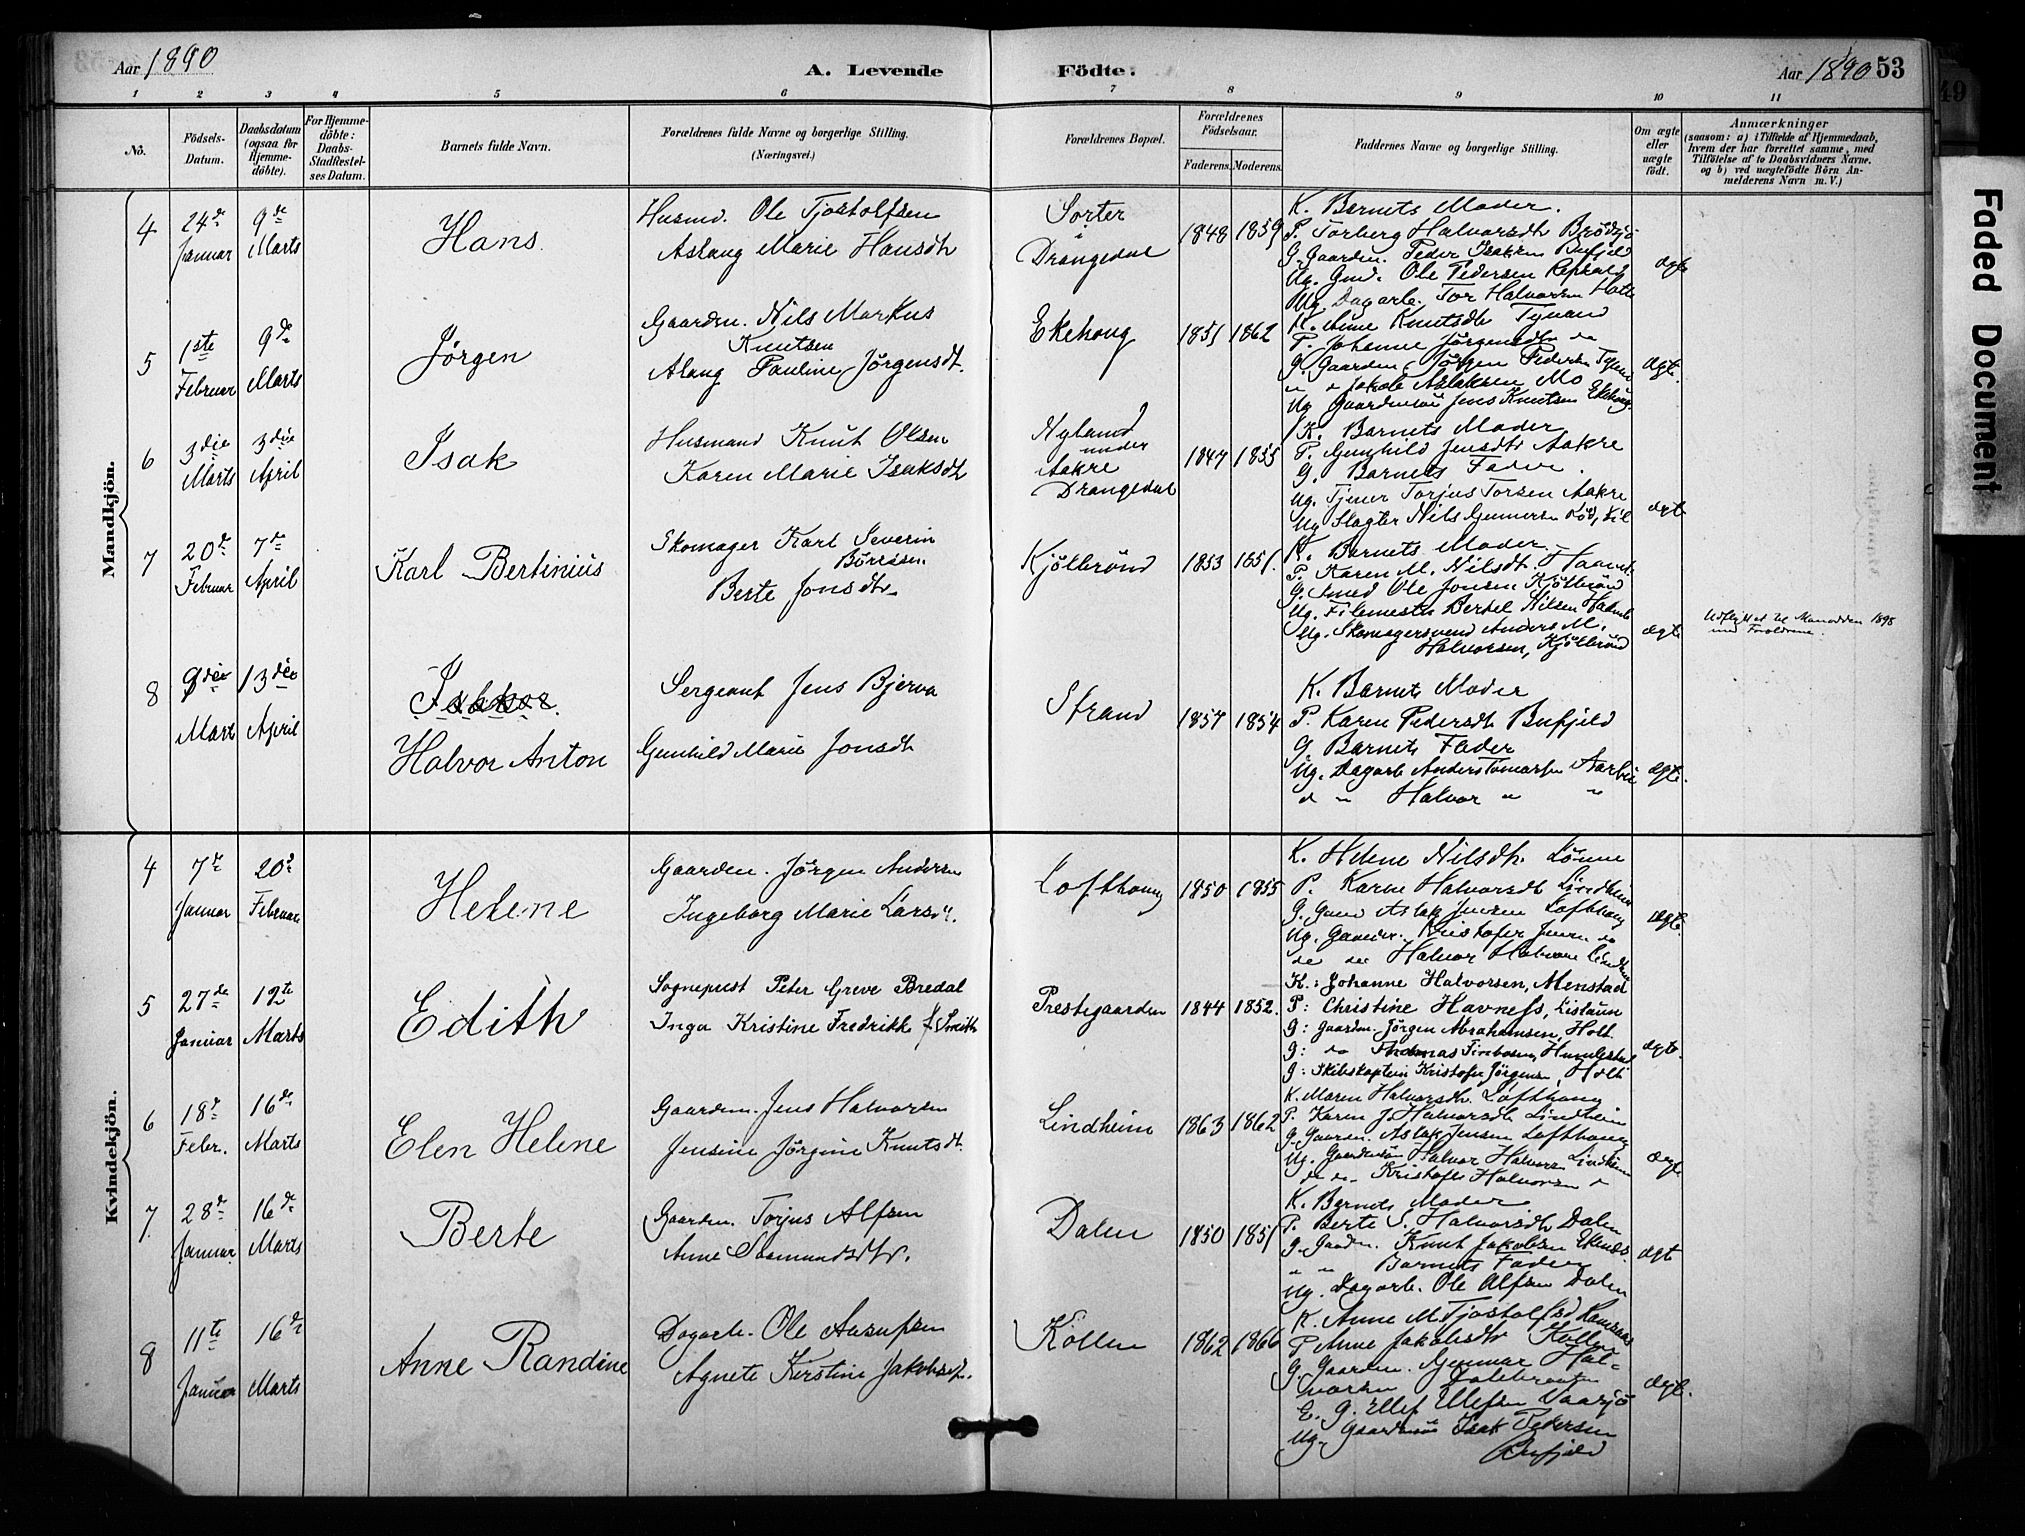 Aar 1890
A. Levende
Födte.
Aar 1890 53
1 2 3 4 5 6 7 8 9 10 11
Nô.
Födsels-Datum.
Daabsdatum (ogsaa for Hjemmedöbte).
For Hjemmedöbte: Daabs-Stadfæstelses Datum.
Barnets fulde Navn.
Forældrenes fulde Navne og borgerlige Stilling.
(Næringsvei.)
Forældrenes Bopæl.
Forældrenes Födselsaar.
Faderens. Moderens.
Faddernes Navne og borgerlige Stilling.
Om ægte eller uægte födt.
Anmærkninger
(saasom: a) i Tilfælde af Hjemmedaab,
hvem der har forrettet samme, med
Tilföielse af to Daabsvidners Navne.
og b) ved uægtefödte Börn Anmelderens Navn m. V.)
Mandkjön.
4
24de Januar
9de Marts
Hans.
Husmd. Ole Tjostolfsen
Aslaug Marie Hansdtr
Sorter i Drangedal
1848 1859
K. Barnets Moder.
P. Torberg Halvorsdtr
G. Gaardm. Peder Isaksen Bufjeld
Ug. Gmd. Ole Pedersen
Ug. Dagarb. Tor Halvorsen
ægte
5
1ste Februar
9de Marts
Jørgen
Gaardm. Nils Markus
Knutsen
Aslaug Pauline Jørgensdt.
Ekehoug
1851 1862
K. Anne Knutsdtr
P. Johanne Jørgensdtr do
G. Gaardm. Jørgen Pedersen
" " Jakob Aslaksen Mo
Ug. Gaardmsøn Jens Knutsen Ekehoug
ægte.
6
3die Marts
3die April
Isak
Husmand Knut Olsen
Karen Marie Isaksdtr
Nyland under Aakre Drangedal
1847 1855
K. Barnets Moder
P. Gunhild Jensdtr Aakre
G. Barnets Fader.
Ug. Tjener Torjus Torsen Aakre
Ug. Slagter Nils Gunnersen
ægte
7
20de Februar
7de April
Karl Bertinius
Skomager Karl Severin
Börresen.
Berte Jonsdtr.
Kjölbrönd
1853 1851.
K. Barnets Moder.
P. Karen M. Nilsdt.
G. Smed Ole Jonsen Kjölbrönd
Ug. Bertel Nilsen
Ug. Skomagersvend Anders M.
Halvorsen, Kjölbrönd
ægte
Udflyttet til 1895
med Forældrene.
8
9die Mart
13die April
Isakor.
Halvor Anton
Sergeant Jens Bjerva
Gunhild Marie Jonsdtr
Strand
1857 1854
K. Barnets Moder
P. Karen Pedersdt Bufjeld
G. Barnets Fader
Ug. Dagarb Anders Aarbu
d " Halvor " "
ægte.
Kvindekjön.
4
7de Januar
20de Februar
Helene
Gaardm. Jörgen Andersen
Ingeborg Marie Larsdtr.
Lofthoug
1850 1855
K. Helene Nilsdtr.
P. Karen Halvorsdt Lindheim
G. Gmd Aslak Jensen Lofthoug
Ug. Gaardm. Kristofer Jensen do
do do Halvor Halvorsen Lindheim
ægte.
5
27de Januar
12te Marts
Edith
Sogneprest Peter Greve Bredal
Inga Kristine Fredrikke f. Smith
Prestegaarden
1844 1852.
K: Johanne Halvorsen, Menstad
P: Christine Havness,
G: Gaardm. Jörgen Abrahamsen, Holt
G: do Thomas
G: Skibskaptein Kristofer Jörgensen, Holt
ægte.
6
18de Febr.
16de Marts
Elen Helene
Gaardm. Jens Halvorsen
Jensine Jörgine Knutsdt.
Lindheim
1863 1862
K. Maren Halvorsdtr. Lofthoug
P. Karen J. Halvorsdtr Lindheim
G. Gaardm. Aslak Jensen Lofthoug
Ug. Gaardmsøn Halvor Halvorsen Lindheim
do do Kristofer Halvorsen do
ægte
7.
28de Januar
16de Marts
Berte
Gaardm. Torjus Alfsen
Anne Saamundsdtr.
Dalen
1850 1851
K. Barnets Moder
P. Berte S. Halvorsdtr Dalen
G. Gaardm. Knut Jakobsen Ekenæs.
" " Barnets Fader
Ug. Dagarb. Ole Alfsen Dalen
ægte
8
11te Januar
16de Marts
Anne Randine
Dagarb. Ole
Agnete Kirstine Jakobsdt.
Kollen
1862 1866
K. Anne M. Tjostolfsd
P. Anne Jakobsdtr Kollen
G. Gaardm. Gunnar Halvorsen
E. G. Ellef Ellefsen
Ug. Gaardmsøn Isak Pedersen
Bufjeld
ægte.
Faded Document
49